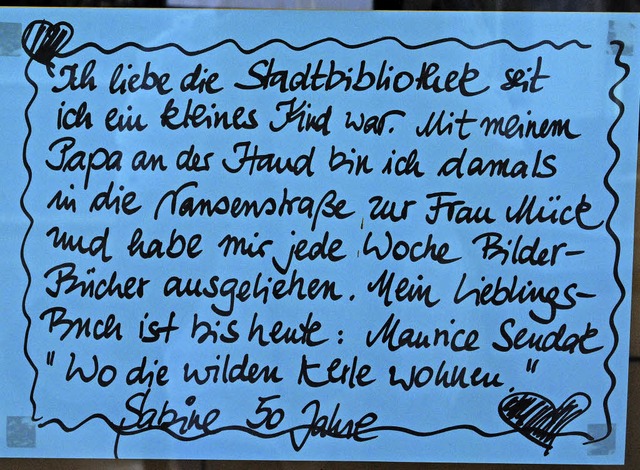 Ich liebe die Stadtbibliothek seit
ich ein kleines Kind war. Mit meinem
Papa an der Hand bin ich damals
in die Nansenstraße zur Frau Mück
und habe mir jede Woche Bilder-
Bücher ausgeliehen. Mein Lieblings-
Buch ist bis heute: Maurice Sendak
"Wo die wilden Kerle wohnen."
Sabine 50 Jahre